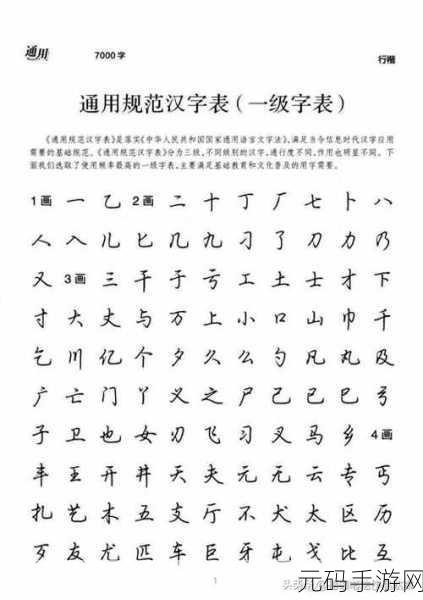 通用 7000字 行楷
通用规范汉字表（一级字表）
《通用规范汉字表》是落实《中华人民共和国国家通用语言文字法》,满足当今信息时代汉字应用
需要的基础规范。《通用规范汉字表》分为三级,不同级别的汉字,通行度不同,作用也明显不同。下
面我们选取了使用频率最高的一级字表,主要满足基础教育和文化普及的用字需要。
1画 一 乙 2画 二 十 丁 厂 七 卜 八
人 入 儿 匕 几 九 刁 了 刀 力 乃
又 3画 三 干 于 亏 工 土 士 才 下
寸 大 丈 与 万 上 小 口 山 巾 千
乞 川 亿 个 夕 久 么 勺 凡 丸 及
广 亡 门 丫 义 之 尸 己 已 巳 弓
子 卫 也 女 刃 飞 习 叉 马 乡 4画
丰 王 开 井 天 夫 元 无 云 专 丐
扎 艺 木 五 支 厅 不 犬 太 区 历
歹 友 尤 匹 车 巨 牙 屯 戈 比 互
1
元码手游网